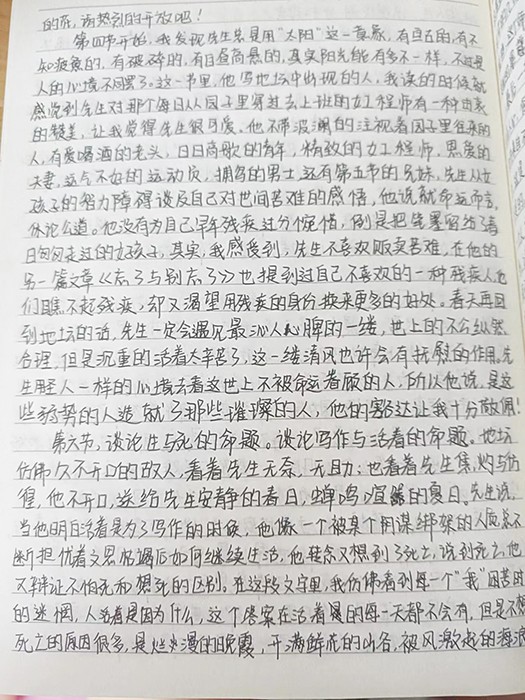 的花，请热烈的开放吧！
第四节开始，我发现先生总是用“太阳”这一意象，有自在的，有不
知疲惫的，有破碎的，有日复高悬的，真实阳光能有多不一样，不过是
人的心境不同罢了。这一书里，他写地坛中出现的人，我读的时候就
感觉到先生对那个每日从园子里穿过去上班的女工程师有一种由衷
的赞美，让我觉得先生很可爱。他不带波澜的注视着园子里往来的
人，有爱喝酒的老头，日日高歌的青年，精致的女工程师，恩爱的
夫妻，运气不好的运动员，捕鸟的男士还有第五节的兄妹，先生从女
孩子的智力障碍谈及自己对世间苦难的感悟，他说就命运而言，
休论公道。他没有为自己早年残疾过分惋惜，倒是把笔墨留给了春
日匆匆走过的女孩子，其实，我感受到，先生不喜欢贩卖苦难，在他的
另一篇文章《忘了与别忘了》也提到过自己不喜欢的一种残疾人，他
们瞧不起残疾，却又渴望用残疾的身份换来更多的好处。春天再回
到地坛的话，先生一定会遇见最沁人心脾的一缕，世上的不公纵然
合理，但是沉重的活着太辛苦了，这一缕清风也许会有抚慰的作用。先
生用轻人一样的心境去看这世上不被命运眷顾的人，所以他说，是这
些弱势的人造就了那些璀璨的人，他的豁达让我十分敬佩！
第六节，谈论生与死的命题。谈论写作与活着的命题。地坛
仿佛久不开口的故人，看着先生无奈，无助；也看着先生焦灼与彷
徨，他不开口，送给先生安静的春日，蝉鸣喧嚣的夏日。先生说，
当他明白活着是为了写作的时候，他像一个被某个阴谋绑架的人质总不
断担忧着文思枯竭后如何继续生活，他转念又想到了死亡，说到死亡，他
又辩证不怕死和想死的区别，在这段文字里，我仿佛看到每一个“我”困苦时
的迷惘，人活着是因为什么，这个答案在活着的每一天都不会有，但是不想
死亡的原因很多，是烂漫的晚霞，开满鲜花的山谷，被风激起的海浪